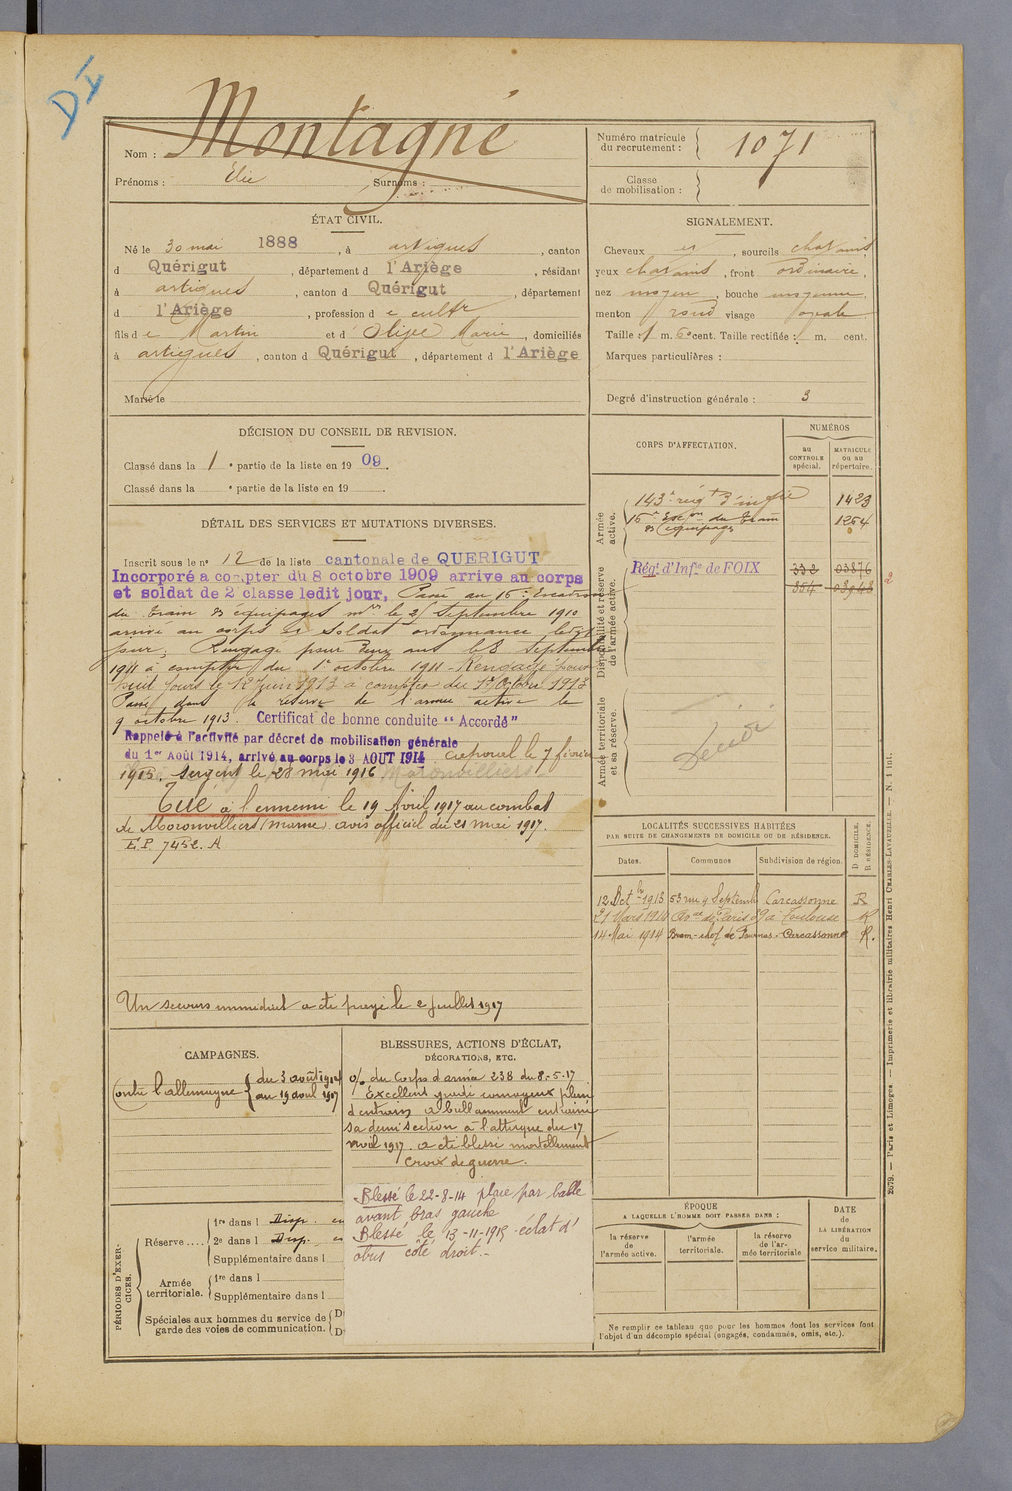 DI
Nom : Montagné
Prénoms : Élie Surnoms :
Numéro matricule du recrutement : 1071
Classe de mobilisation :
ÉTAT CIVIL.
Né le 30 mai 1888, à artigues, canton
d Quérigut, département d l'Ariège, résidant
à artigues, canton d Quérigut, département
d l'Ariège, profession de cultr
fils de Martin et d' Olive Marie, domiciliés
à artigues, canton d Quérigut, département d l'Ariège
Marié le
SIGNALEMENT.
Cheveux et, sourcils chatains
yeux chatains, front ordinaire,
nez moyen, bouche moyenne,
menton rond visage ovale
Taille : 1 m. 60 cent. Taille rectifiée : m. cent.
Marques particulières :
Degré d'instruction générale : 3
DÉCISION DU CONSEIL DE REVISION.
Classé dans la 1e partie de la liste en 1909.
Classé dans la e partie de la liste en 19 .
DÉTAIL DES SERVICES ET MUTATIONS DIVERSES.
Inscrit sous le n° 12 de la liste cantonale de QUERIGUT
Incorporé a compter du 8 octobre 1909 arrive au corps
et soldat de 2e classe ledit jour, Passé au 16e Escadron
du train des équipages mres le 2 Septembre 1910
arrivé au corps et soldat ordonnance ledit
jour. Rengagé pour deux ans le 8 Septembre
1911 à compter du 1er octobre 1911 - Rengagé pour
huit jours le 12 Juin 1913 à compter du 1er Octobre 1913
Passé dans la réserve de l'armée active le
9 octobre 1913. Certificat de bonne conduite "Accordé"
Rappelé à l'activité par décret de mobilisation générale
du 1er Août 1914, arrivé au corps le 3 AOUT 1914. Caporal le 7 février
1915. Sergent le 28 mai 1916 Moronvilliers
Tué à l'ennemi le 19 Avril 1917 au combat
de Moronvilliers (Marne) avis officiel du 21 mai 1917.
E.P. 7452. A
Un secours immédiat a été payé le 2 Juillet 1917
CORPS D'AFFECTATION.
NUMÉROS
au CONTROLE spécial.
MATRICULE ou au répertoire.
Armée active.
143e régt d'infrie 1423
16e Escon du train des équipages 1264
Disponibilité et réserve de l'armée active.
Régt. d'Infie de FOIX 332 03876
354 03943
2
Armée territoriale et sa réserve.
Décédé
LOCALITÉS SUCCESSIVES HABITÉES
PAR SUITE DE CHANGEMENTS DE DOMICILE OU DE RÉSIDENCE.
Dates. Communes Subdivision de région. D DOMICILE. R RÉSIDENCE.
12 Oct bre 1913 53 rue 4 Septemb Carcassonne R
21 Mars 1914 de Paris 29 à Toulouse R
14 Mai 1914 Bram - chof de Fournas. Carcassonne R.
CAMPAGNES.
Contre l'allemagne du 3 août 1914
au 19 avril 1917
BLESSURES, ACTIONS D'ÉCLAT,
DÉCORATIONS, ETC.
o/o du Corps d'armée 238 du 8-5-17
Excellent gradé courageux plein
d'entrain a brillamment entrainé
sa demi section à l'attaque du 17
avril 1917. a été blessé mortellement
Croix de guerre.
Blessé le 22-8-14 plaie par balle
avant bras gauche
Blessé le 13-11-1915 - éclat d'
obus côté droit.-
PÉRIODES D'EXERCICES.
Réserve....
1re dans l Disp. en
2e dans l Disp. en
Supplémentaire dans l
Armée territoriale.
1re dans l
Supplémentaire dans l
Spéciales aux hommes du service de D
garde des voies de communication. D
ÉPOQUE
A LAQUELLE L'HOMME DOIT PASSER DANS :
la réserve de l'armée active.
l'armée territoriale.
la réserve de l'armée territoriale
DATE de LA LIBÉRATION du service militaire.
Ne remplir ce tableau que pour les hommes dont les services font
l'objet d'un décompte spécial (engagés, condamnés, omis, etc.).
2679. — Paris et Limoges. — Imprimerie et librairie militaires Henri CHARLES-LAVAUZELLE. — N. 1 int.